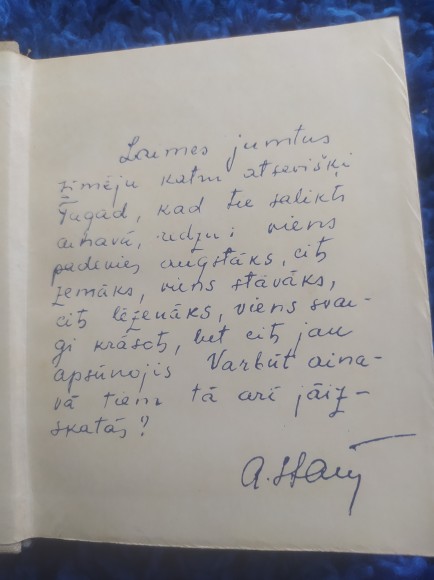 Laimes jumtus
zīmēju katru atsevišķi
Tagad, kad tie salikti
ainavā, redzu: viens
padevies augstāks, cits
zemāks, viens stāvāks,
cits lēzenāks, viens svai-
gi krāsots, bet cits jau
apsūnojis Varbūt aina-
vā tiem tā arī jāiz-
skatās?